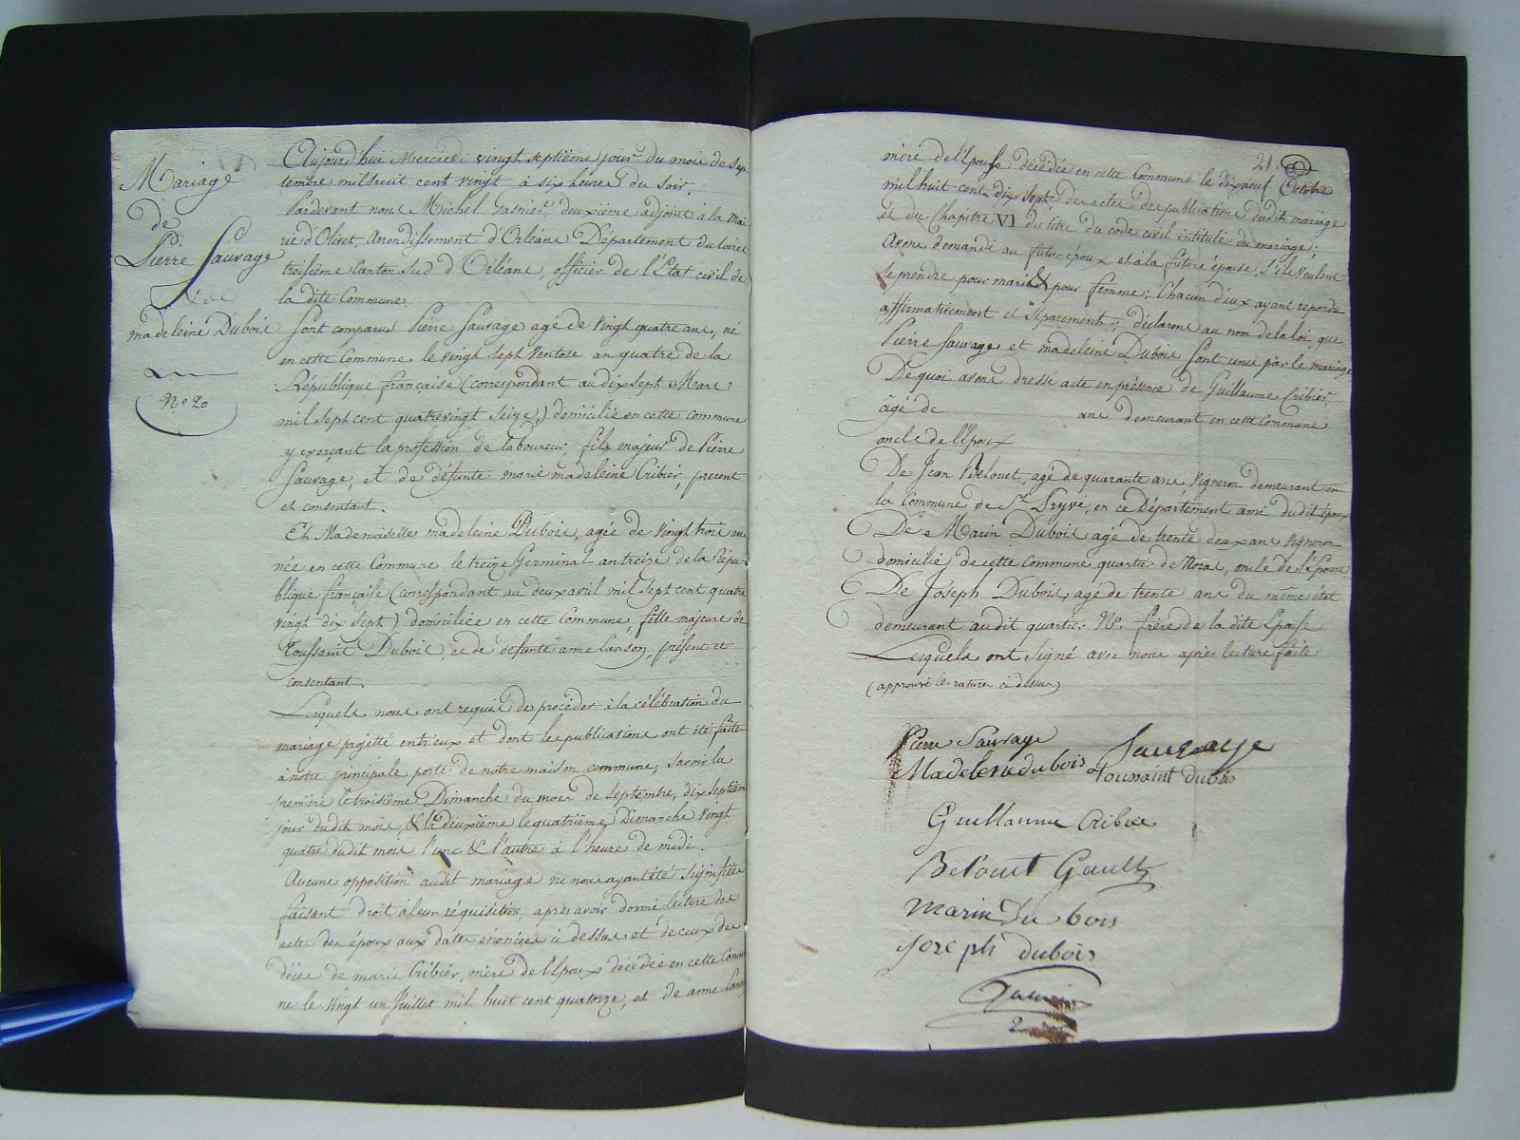 Mariage
de
Pierre Sauvage
madeleine Dubois
N° 20
Aujourd'hui Mercredi vingt septième jour du mois de sep
tembre mil huit cent vingt à six heures du soir.
Pardevant nous Michel Gasnier, deuxième adjoint à la Mai
rie d'Olivet, Arrondissement d'Orléans Département du Loiret
troisième Canton Sud d'Orléans, officier de l'État civil de
la dite Commune.
Sont comparus Pierre Sauvage agé de vingt quatre ans, né
en cette Commune le vingt sept Ventose an quatre de la
République française (correspondant au dix sept Mars
mil sept cent quatrevingt Seize,) domicilié en cette commune
y exerçant la profession de laboureur, fils majeur de Pierre
Sauvage, et de défunte marie madeleine Cribier, présent
et consentant.
Et Mademoiselle madeleine Dubois, agée de vingt trois ans
née en cette Commune le treize Germinal an treize de la Répu
blique française (correspondant au deux avril mil sept cent quatre
vingt dix sept) domiciliée en cette Commune, fille majeure de
Toussaint Dubois, et de défunte anne Lanson, présent et
consentant.
Lesquels nous ont requis de procéder à la célébration du
mariage projetté entr'eux et dont les publications ont été faites
à notre principale porte de notre maison commune, Savoir la
première le troisième Dimanche du mois de Septembre, dix septième
jour dudit mois, & la deuxième le quatrième Dimanche vingt
quatre dudit mois l'une & l'autre à l'heure de midi.
Aucune opposition audit mariage ne nous ayant été signifiée
faisant droit à leur réquisition, après avoir donné lecture des
acte des époux aux dates énoncées ci dessus et de ceux de
décès de marie Cribier, mère de l'Epoux décédée en cette Commu
ne le vingt un Juillet mil huit cent quatorze, et de anne Lanson
21
mère de l'Epouse décédée en cette Commune le dixneuf Octobre
mil huit cent dix sept des actes de publications dudit mariage
et du Chapitre VI du titre du code civil intitulé du mariage;
Avons demandé au futur époux et à la future épouse, s'ils veulent
se prendre pour mari & pour femme; Chacun d'eux ayant répondu
affirmativement et séparément; déclarons au nom de la loi, que
Pierre Sauvage et madeleine Dubois sont unis par le mariage
De quoi avons dressé acte en présence de Guillaume Cribier
âgé de ans demeurant en cette Commune
oncle de l'Epoux
De Jean Belouet, agé de quarante ans, vigneron demeurant en
la Commune de St Pryvé, en ce Département ami dudit époux
De Marin Dubois agé de trente deux ans vigneron
domicilié de cette commune quartier de Noras, oncle de l'Epouse
De Joseph Dubois, agé de trente ans du même état
demeurant audit quartier N°. frère de la dite Epouse
Lesquels ont signé avec nous après lecture faite
(approuvé les ratures ci dessus)
Pierre Sauvage Sauvage
Madelene dubois Toussaint dubois
Guillaume Cribier
Belouet Gault
marin du bois
Joseph dubois
Gasnier
2